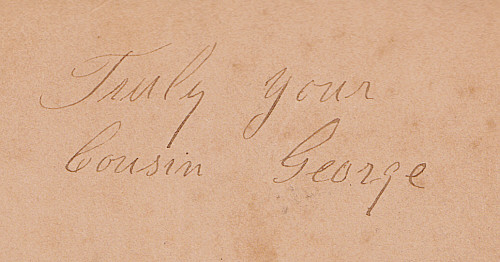 Truly your
Cousin George